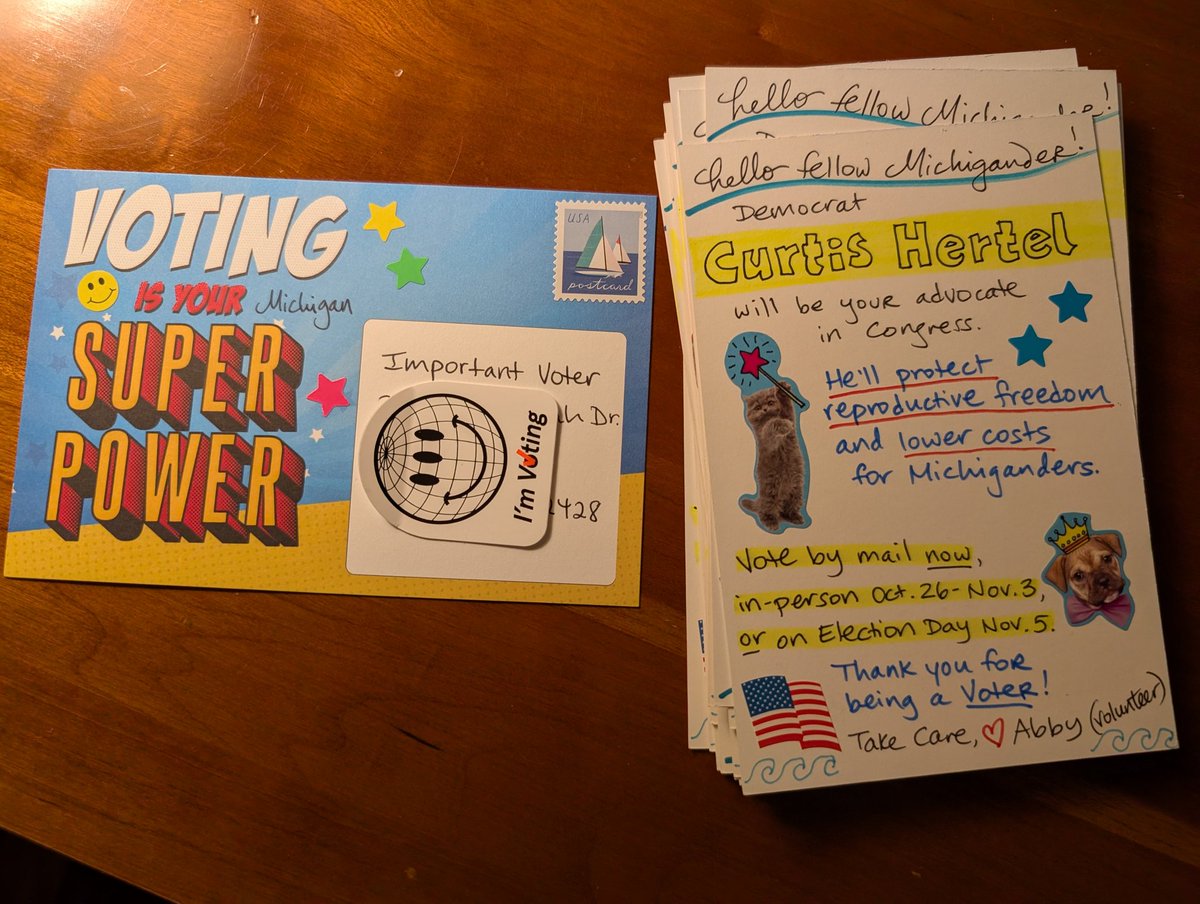 VOTING
IS YOUR Michigan
SUPER
POWER
USA
postcard
Important Voter
Dr.
I'm Voting
2428
hello fellow Michigander!
hello fellow Michigander!
Democrat
Curtis Hertel
will be your advocate
in Congress.
He'll protect
reproductive freedom
and lower costs
for Michiganders.
Vote by mail now,
in-person Oct. 26-Nov. 3,
or on Election Day Nov. 5.
Thank you for
being a Voter!
Take Care, Abby (volunteer)